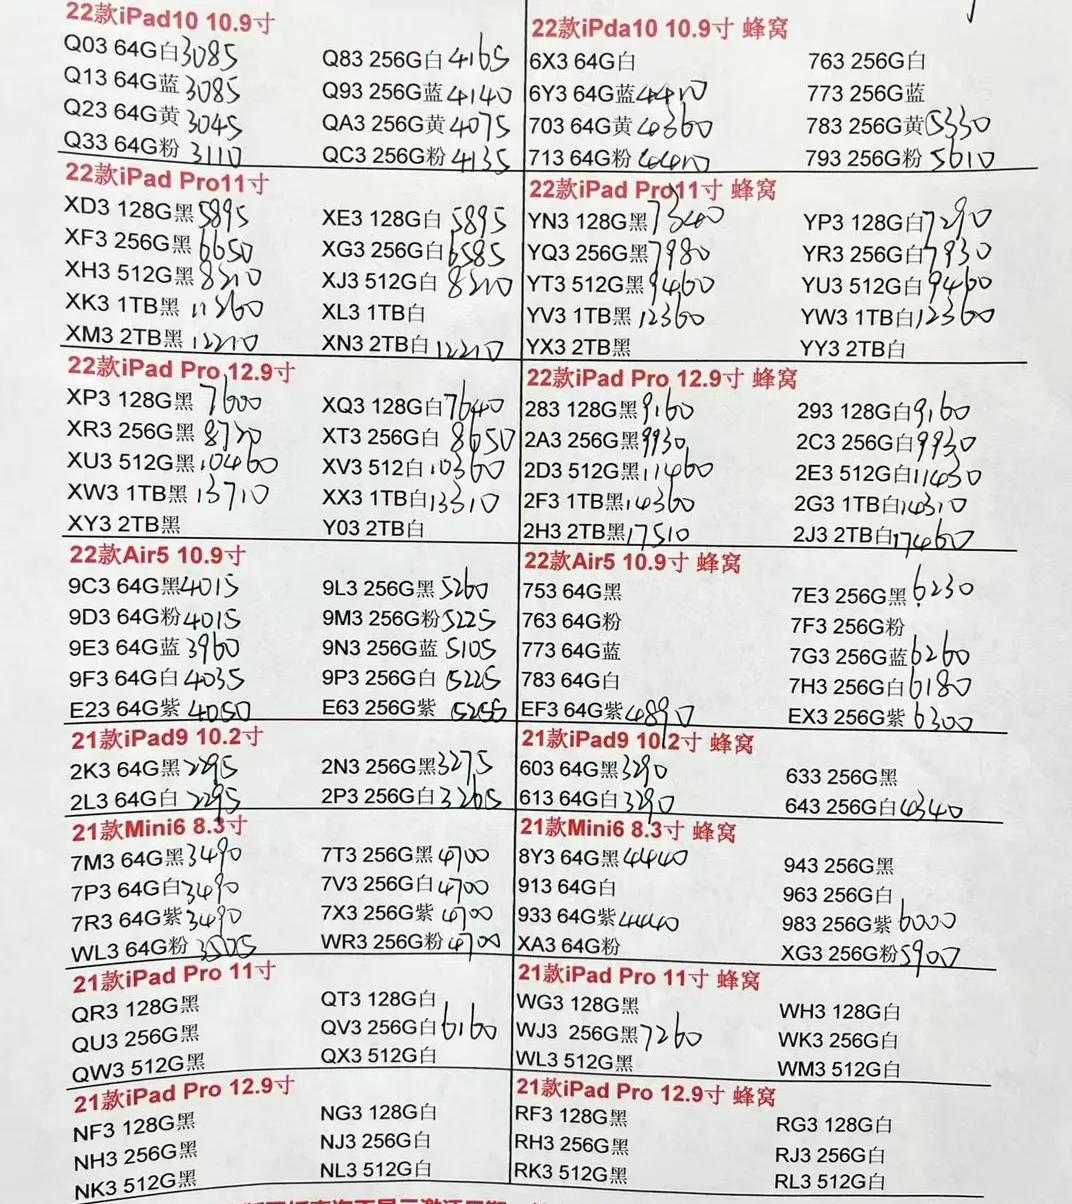 22款iPad10 10.9寸
Q03 64G白3085 Q83 256G白4165
Q13 64G蓝3085 Q93 256G蓝4140
Q23 64G黄3045 QA3 256G黄4075
Q33 64G粉3110 QC3 256G粉4135
22款iPda10 10.9寸 蜂窝
6X3 64G白 763 256G白
6Y3 64G蓝4410 773 256G蓝
703 64G黄4360 783 256G黄5330
713 64G粉4410 793 256G粉5610
22款iPad Pro11寸
XD3 128G黑5895 XE3 128G白5895
XF3 256G黑6650 XG3 256G白6585
XH3 512G黑 XJ3 512G白
XK3 1TB黑11360 XL3 1TB白
XM3 2TB黑12210 XN3 2TB白12210
22款iPad Pro11寸 蜂窝
YN3 128G黑7340 YP3 128G白7290
YQ3 256G黑7980 YR3 256G白7930
YT3 512G黑9460 YU3 512G白9460
YV3 1TB黑12360 YW3 1TB白12360
YX3 2TB黑 YY3 2TB白
22款iPad Pro 12.9寸
XP3 128G黑7600 XQ3 128G白7640
XR3 256G黑 XT3 256G白8650
XU3 512G黑10460 XV3 512白10360
XW3 1TB黑13710 XX3 1TB白13310
XY3 2TB黑 Y03 2TB白
22款iPad Pro 12.9寸 蜂窝
283 128G黑9160 293 128G白9160
2A3 256G黑9930 2C3 256G白9930
2D3 512G黑11460 2E3 512G白11430
2F3 1TB黑14360 2G3 1TB白14310
2H3 2TB黑17510 2J3 2TB白17460
22款Air5 10.9寸
9C3 64G黑4015 9L3 256G黑5260
9D3 64G粉4015 9M3 256G粉5225
9E3 64G蓝3960 9N3 256G蓝5105
9F3 64G白4035 9P3 256G白5225
E23 64G紫4050 E63 256G紫5255
22款Air5 10.9寸 蜂窝
753 64G黑 7E3 256G黑6230
763 64G粉 7F3 256G粉
773 64G蓝 7G3 256G蓝6260
783 64G白 7H3 256G白6180
EF3 64G紫4890 EX3 256G紫6300
21款iPad9 10.2寸
2K3 64G黑2295 2N3 256G黑3275
2L3 64G白2295 2P3 256G白3265
21款iPad9 10.2寸 蜂窝
603 64G黑3290 633 256G黑
613 64G白3290 643 256G白4340
21款Mini6 8.3寸
7M3 64G黑3490 7T3 256G黑4700
7P3 64G白3490 7V3 256G白4700
7R3 64G紫3490 7X3 256G紫4700
WL3 64G粉3505 WR3 256G粉4700
21款Mini6 8.3寸 蜂窝
8Y3 64G黑4440 943 256G黑
913 64G白 963 256G白
933 64G紫4440 983 256G紫6000
XA3 64G粉 XG3 256G粉5900
21款iPad Pro 11寸
QR3 128G黑 QT3 128G白
QU3 256G黑 QV3 256G白6160
QW3 512G黑 QX3 512G白
21款iPad Pro 11寸 蜂窝
WG3 128G黑 WH3 128G白
WJ3 256G黑7260 WK3 256G白
WL3 512G黑 WM3 512G白
21款iPad Pro 12.9寸
NF3 128G黑 NG3 128G白
NH3 256G黑 NJ3 256G白
NK3 512G黑 NL3 512G白
21款iPad Pro 12.9寸 蜂窝
RF3 128G黑 RG3 128G白
RH3 256G黑 RJ3 256G白
RK3 512G黑 RL3 512G白